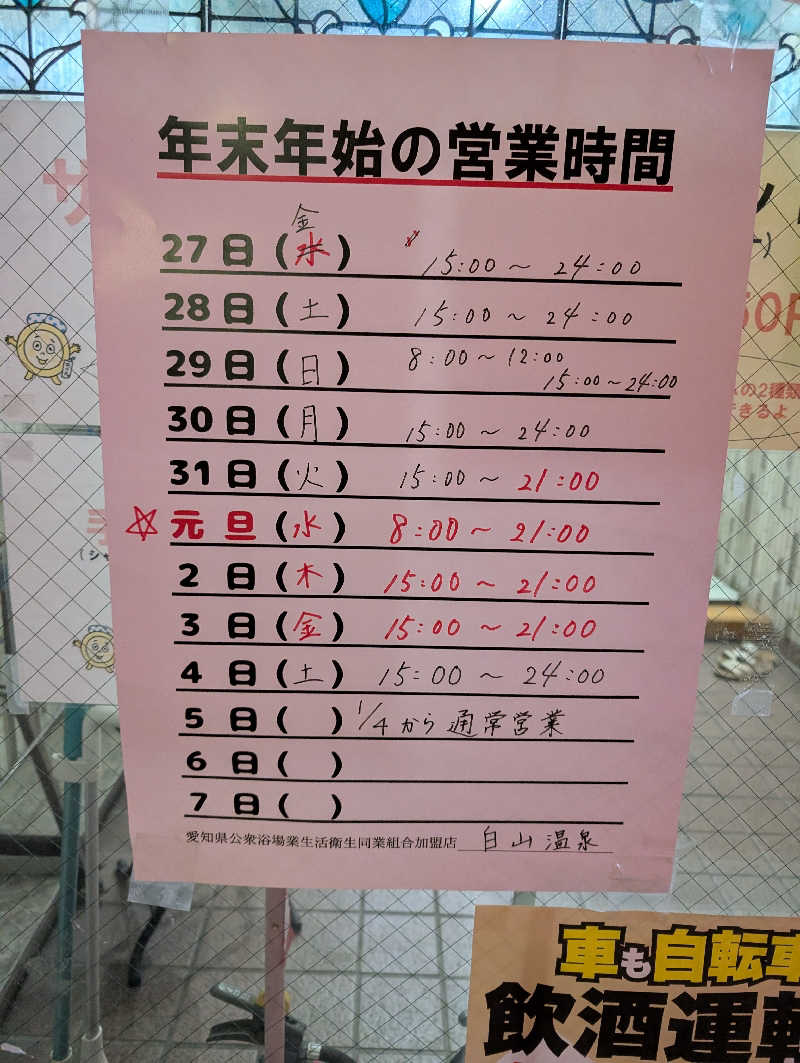 年末年始の営業時間
金
27日(水) 15:00～24:00
28日(土) 15:00～24:00
29日(日) 8:00～12:00
15:00～24:00
30日(月) 15:00～24:00
31日(火) 15:00～21:00
☆元旦(水) 8:00～21:00
2日(木) 15:00～21:00
3日(金) 15:00～21:00
4日(土) 15:00～24:00
5日( ) 1/4から通常営業
6日( )
7日( )
愛知県公衆浴場業生活衛生同業組合加盟店 白山温泉
サ
の2種類
きるよ
車も自転車
飲酒運転